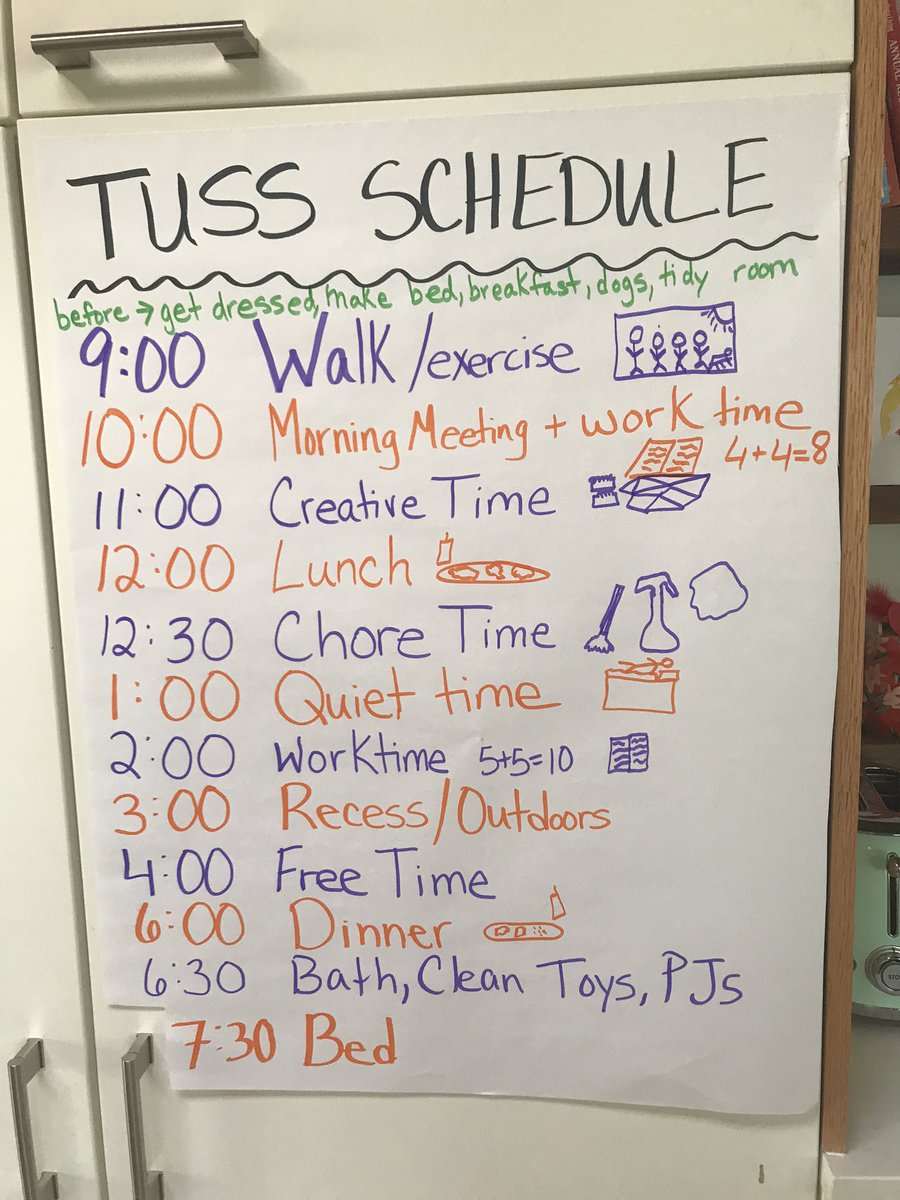 TUSS SCHEDULE
before → get dressed, make bed, breakfast, dogs, tidy room
9:00 Walk/exercise
10:00 Morning Meeting + work time
4+4=8
11:00 Creative Time
12:00 Lunch
12:30 Chore Time
1:00 Quiet time
2:00 Worktime 5+5=10
3:00 Recess/Outdoors
4:00 Free Time
6:00 Dinner
6:30 Bath, Clean Toys, PJs
7:30 Bed